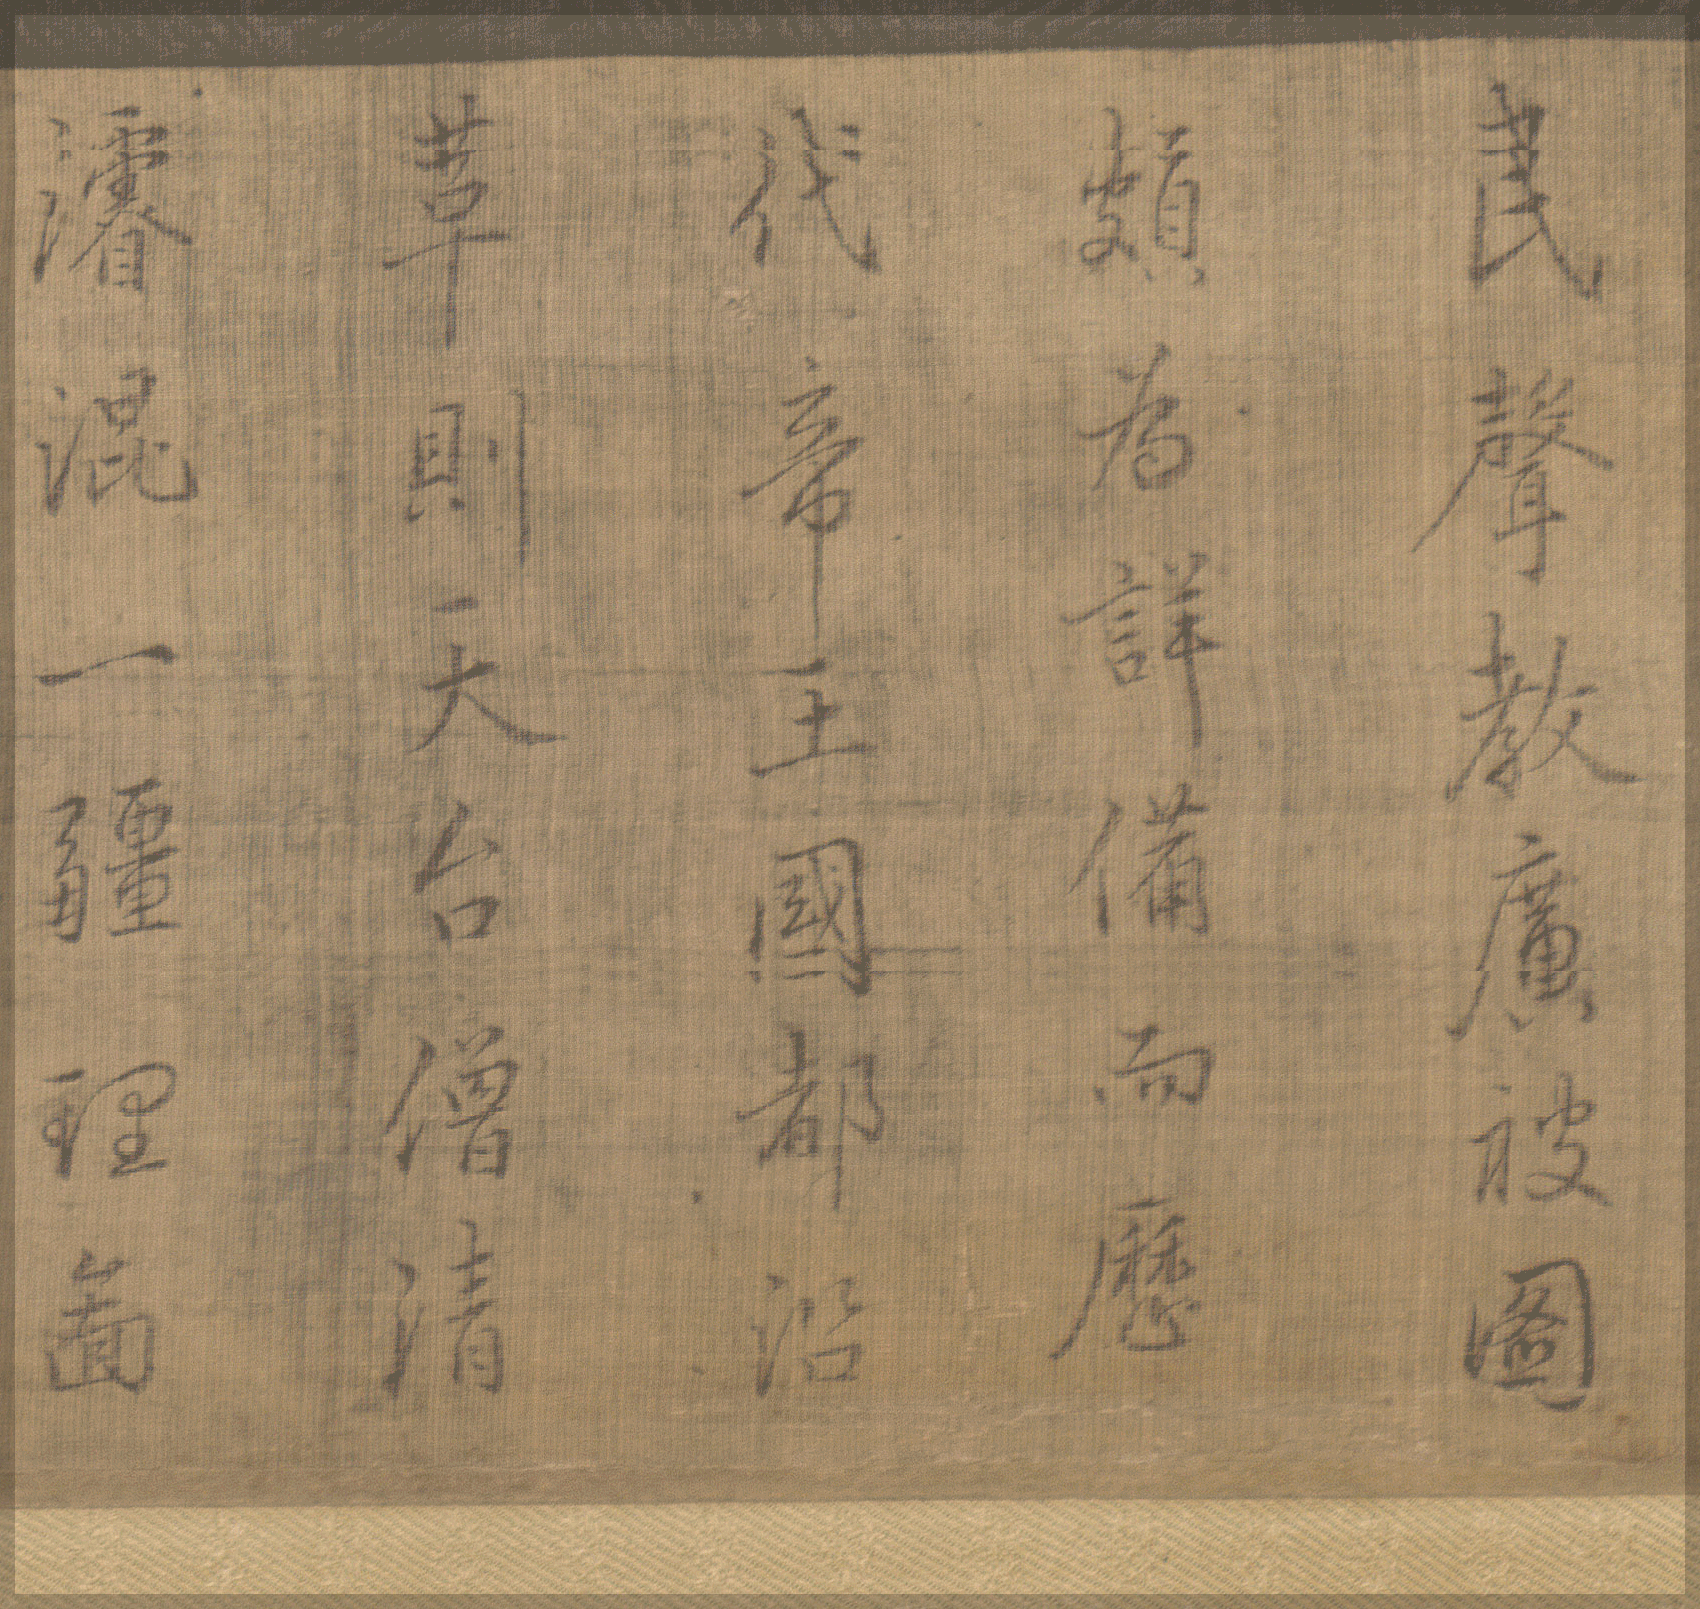 民聲教廣被圖
頗為詳備而歷
代帝王國都沿
革則天台僧清
濬混一疆理啚